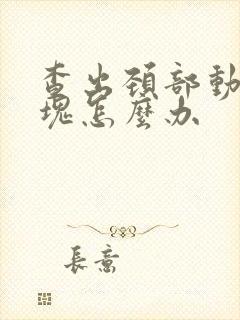 查出頚部動
塊怎麼办
長意